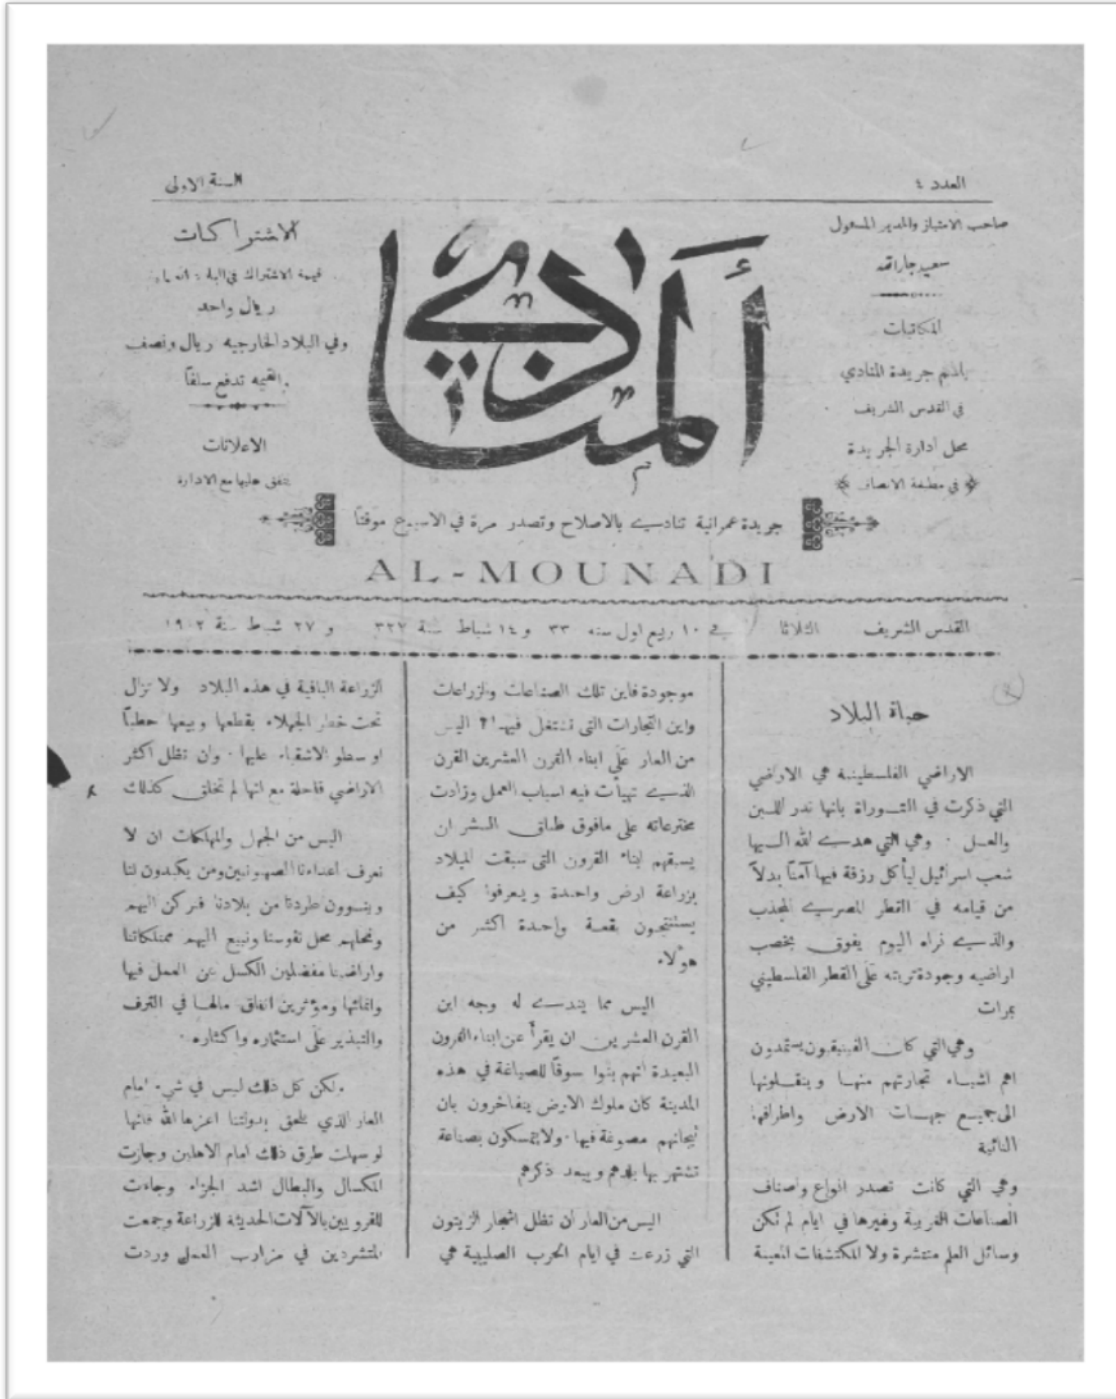 العدد ٤
السنة الاولى
صاحب الامتياز والمدير المسئول
سعيد جارالله
المكاتبات
باسم جريدة المنادي
في القدس الشريف
محل ادارة الجريدة
في مطبعة الانصاف
المنادي
الاشتراكات
قيمة الاشتراك في البلاد
ريال واحد
وفي البلاد الخارجيه ريال ونصف
القيمه تدفع سلفاً
الاعلانات
يتفق عليها مع الادارة
جريدة عمرانية تنادي بالاصلاح وتصدر مرة في الاسبوع موقتاً
AL-MOUNADI
القدس الشريف الثلاثا في ١٠ ربيع اول سنه ٣٣ و ١٤ شباط سنة ٣٢٧ و ٢٧ شباط سنة
حياة البلاد
الاراضي الفلسطينية هي الاراضي
التي ذكرت في التوراة بانها تدر اللبن
والعسل . وهي التي هدى الله اليها
شعب اسرائيل ليأكل رزقة فيها آمناً بدلاً
من قيامه في القطر المصري المجذب
والذي نراه اليوم يفوق بخصب
اراضيه وجودة تربته على القطر الفلسطيني
بمرات
وهي التي كان الفينيقيون يستمدون
اهم اشياء تجارتهم منها وينقلونها
الى جميع جهات الارض واطرافها
النائية
وهي التي كانت تصدر انواع واصناف
الصناعات الغربية وغيرها في ايام لم تكن
وسائل العلم منتشرة ولا المكتشفات المعينة
موجودة فاين تلك الصناعات والزراعات
واين التجارات التي تشتغل فيها ؟ اليس
من العار على ابناء القرن العشرين القرن
الذي تهيأت فيه اسباب العمل وزادت
مخترعاته على مافوق طاق البشر ان
يسبقهم ابناء القرون التي سبقت الميلاد
بزراعة ارض واحدة ويعرفوا كيف
يستنتجون بقعة واحدة اكثر من
هؤلاء
اليس مما يندى له وجه ابن
القرن العشرين ان يقرأ عن ابناء القرون
البعيدة انهم بنوا سوقاً للصياغة في هذه
المدينة كان ملوك الارض يتفاخرون بان
تيجانهم مصوغة فيها . ولا يمسكون بصناعة
تشتهر بها بلدهم ويبعد ذكرهم
اليس من العار ان تظل اشجار الزيتون
التي زرعت في ايام الحرب الصليبية هي
الزراعة الباقية في هذه البلاد ولا تزال
تحت خطر الجهلاء بقطعها وبيعها حطباً
او سطو الاشقياء عليها . وان تظل اكثر
الاراضي قاحلة مع انها لم تخلق كذلك
اليس من الجهل والمهلكات ان لا
نعرف اعداءنا الصهيونيين ومن يكيدون لنا
وينوون طردنا من بلادنا فنركن اليهم
ونحلهم محل نفوسنا ونبيع اليهم ممتلكاتنا
واراضينا مفضلين الكسل عن العمل فيها
وانمائها ومؤثرين انفاق مالها في الترف
والتبذير على استثماره واكثاره .
ولكن كل ذلك ليس في شيء امام
العار الذي يلحق بدولتنا اعزها الله فانها
لو سهلت طرق ذلك امام الاهلين وجازت
المكسال والبطال اشد الجزاء وجاءت
للقرويين بالآلات الحديثة للزراعة وجمعت
المتشردين في مزارب العمل وردت